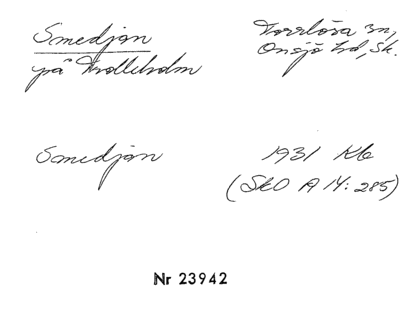 Smedjan
på Trolleholm
Torrlösa sn,
Onsjö hd, Sk.
Smedjan
1931 Kb
(SkO A 14: 285)
Nr 23942